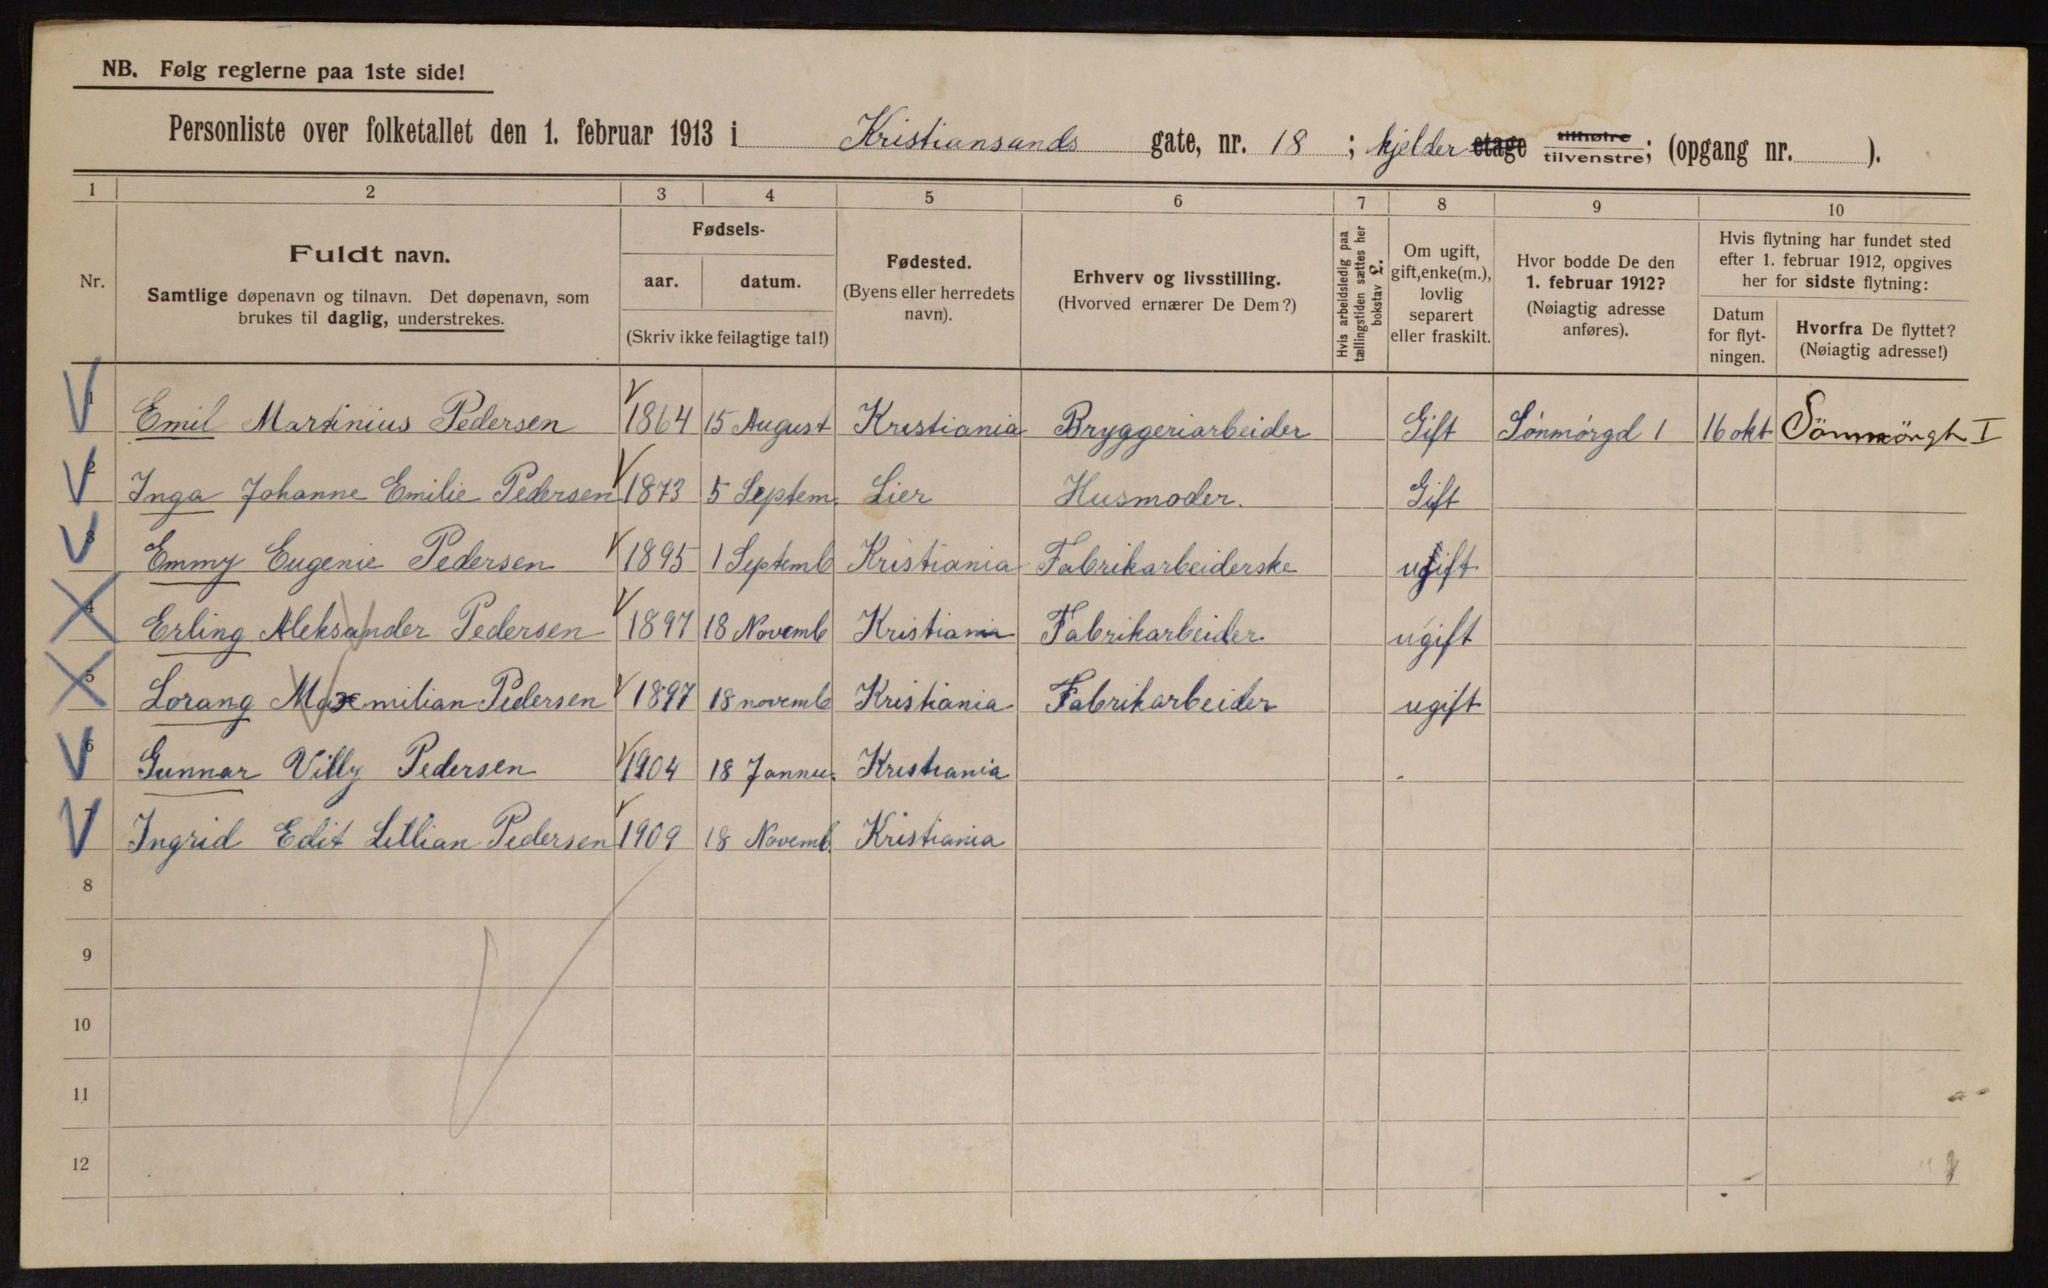 NB. Følg reglerne paa 1ste side!
Personliste over folketallet den 1. februar 1913 i Kristiansands gate, nr. 18 ; kjelder etage tilhøire tilvenstre; (opgang nr. ).
1 2 3 4 5 6 7 8 9 10
Nr.
Fuldt navn.
Samtlige døpenavn og tilnavn. Det døpenavn, som
brukes til daglig, understrekes.
Fødsels-
aar. datum.
(Skriv ikke feilagtige tal!)
Fødested.
(Byens eller herredets
navn).
Erhverv og livsstilling.
(Hvorved ernærer De Dem?)
Hvis arbeidsledig paa
tællingstiden sættes her
bokstav L.
Om ugift,
gift, enke(m.),
lovlig
separert
eller fraskilt.
Hvor bodde De den
1. februar 1912?
(Nøiagtig adresse
anføres).
Hvis flytning har fundet sted
efter 1. februar 1912, opgives
her for sidste flytning:
Datum
for flyt-
ningen.
Hvorfra De flyttet?
(Nøiagtig adresse!)
1 Emil Martinius Pedersen 1864 15 August Kristiania Bryggeriarbeider Gift Sønmørgd 1 16 okt Sönmörgt I
2 Inga Johanne Emilie Pedersen 1873 5 Septem. Lier Husmoder. Gift
3 Emmy Eugenie Pedersen 1895 1 Septemb Kristiania Fabrikarbeiderske ugift.
4 Erling Aleksander Pedersen 1897 18 Novemb Kristiania Fabrikarbeider. ugift
5 Lorang Maxmilian Pedersen 1897 18 novemb Kristiania Fabrikarbeider ugift
6 Gunnar Villy Pedersen 1904 18 Jannu. Kristiania
7 Ingrid Edit Lillian Pedersen 1909 18 Novemb. Kristiania
8
9
10
11
12